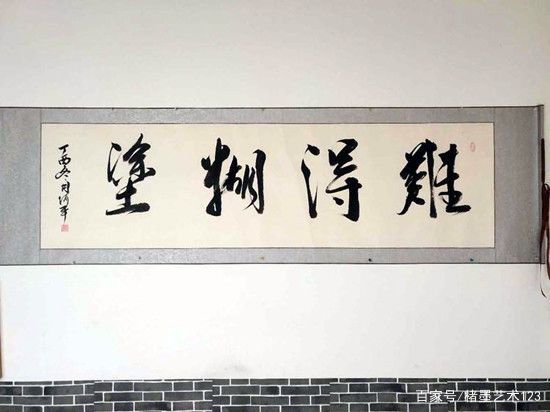 難得糊塗
丁酉冬
百家号/楮墨艺术123l